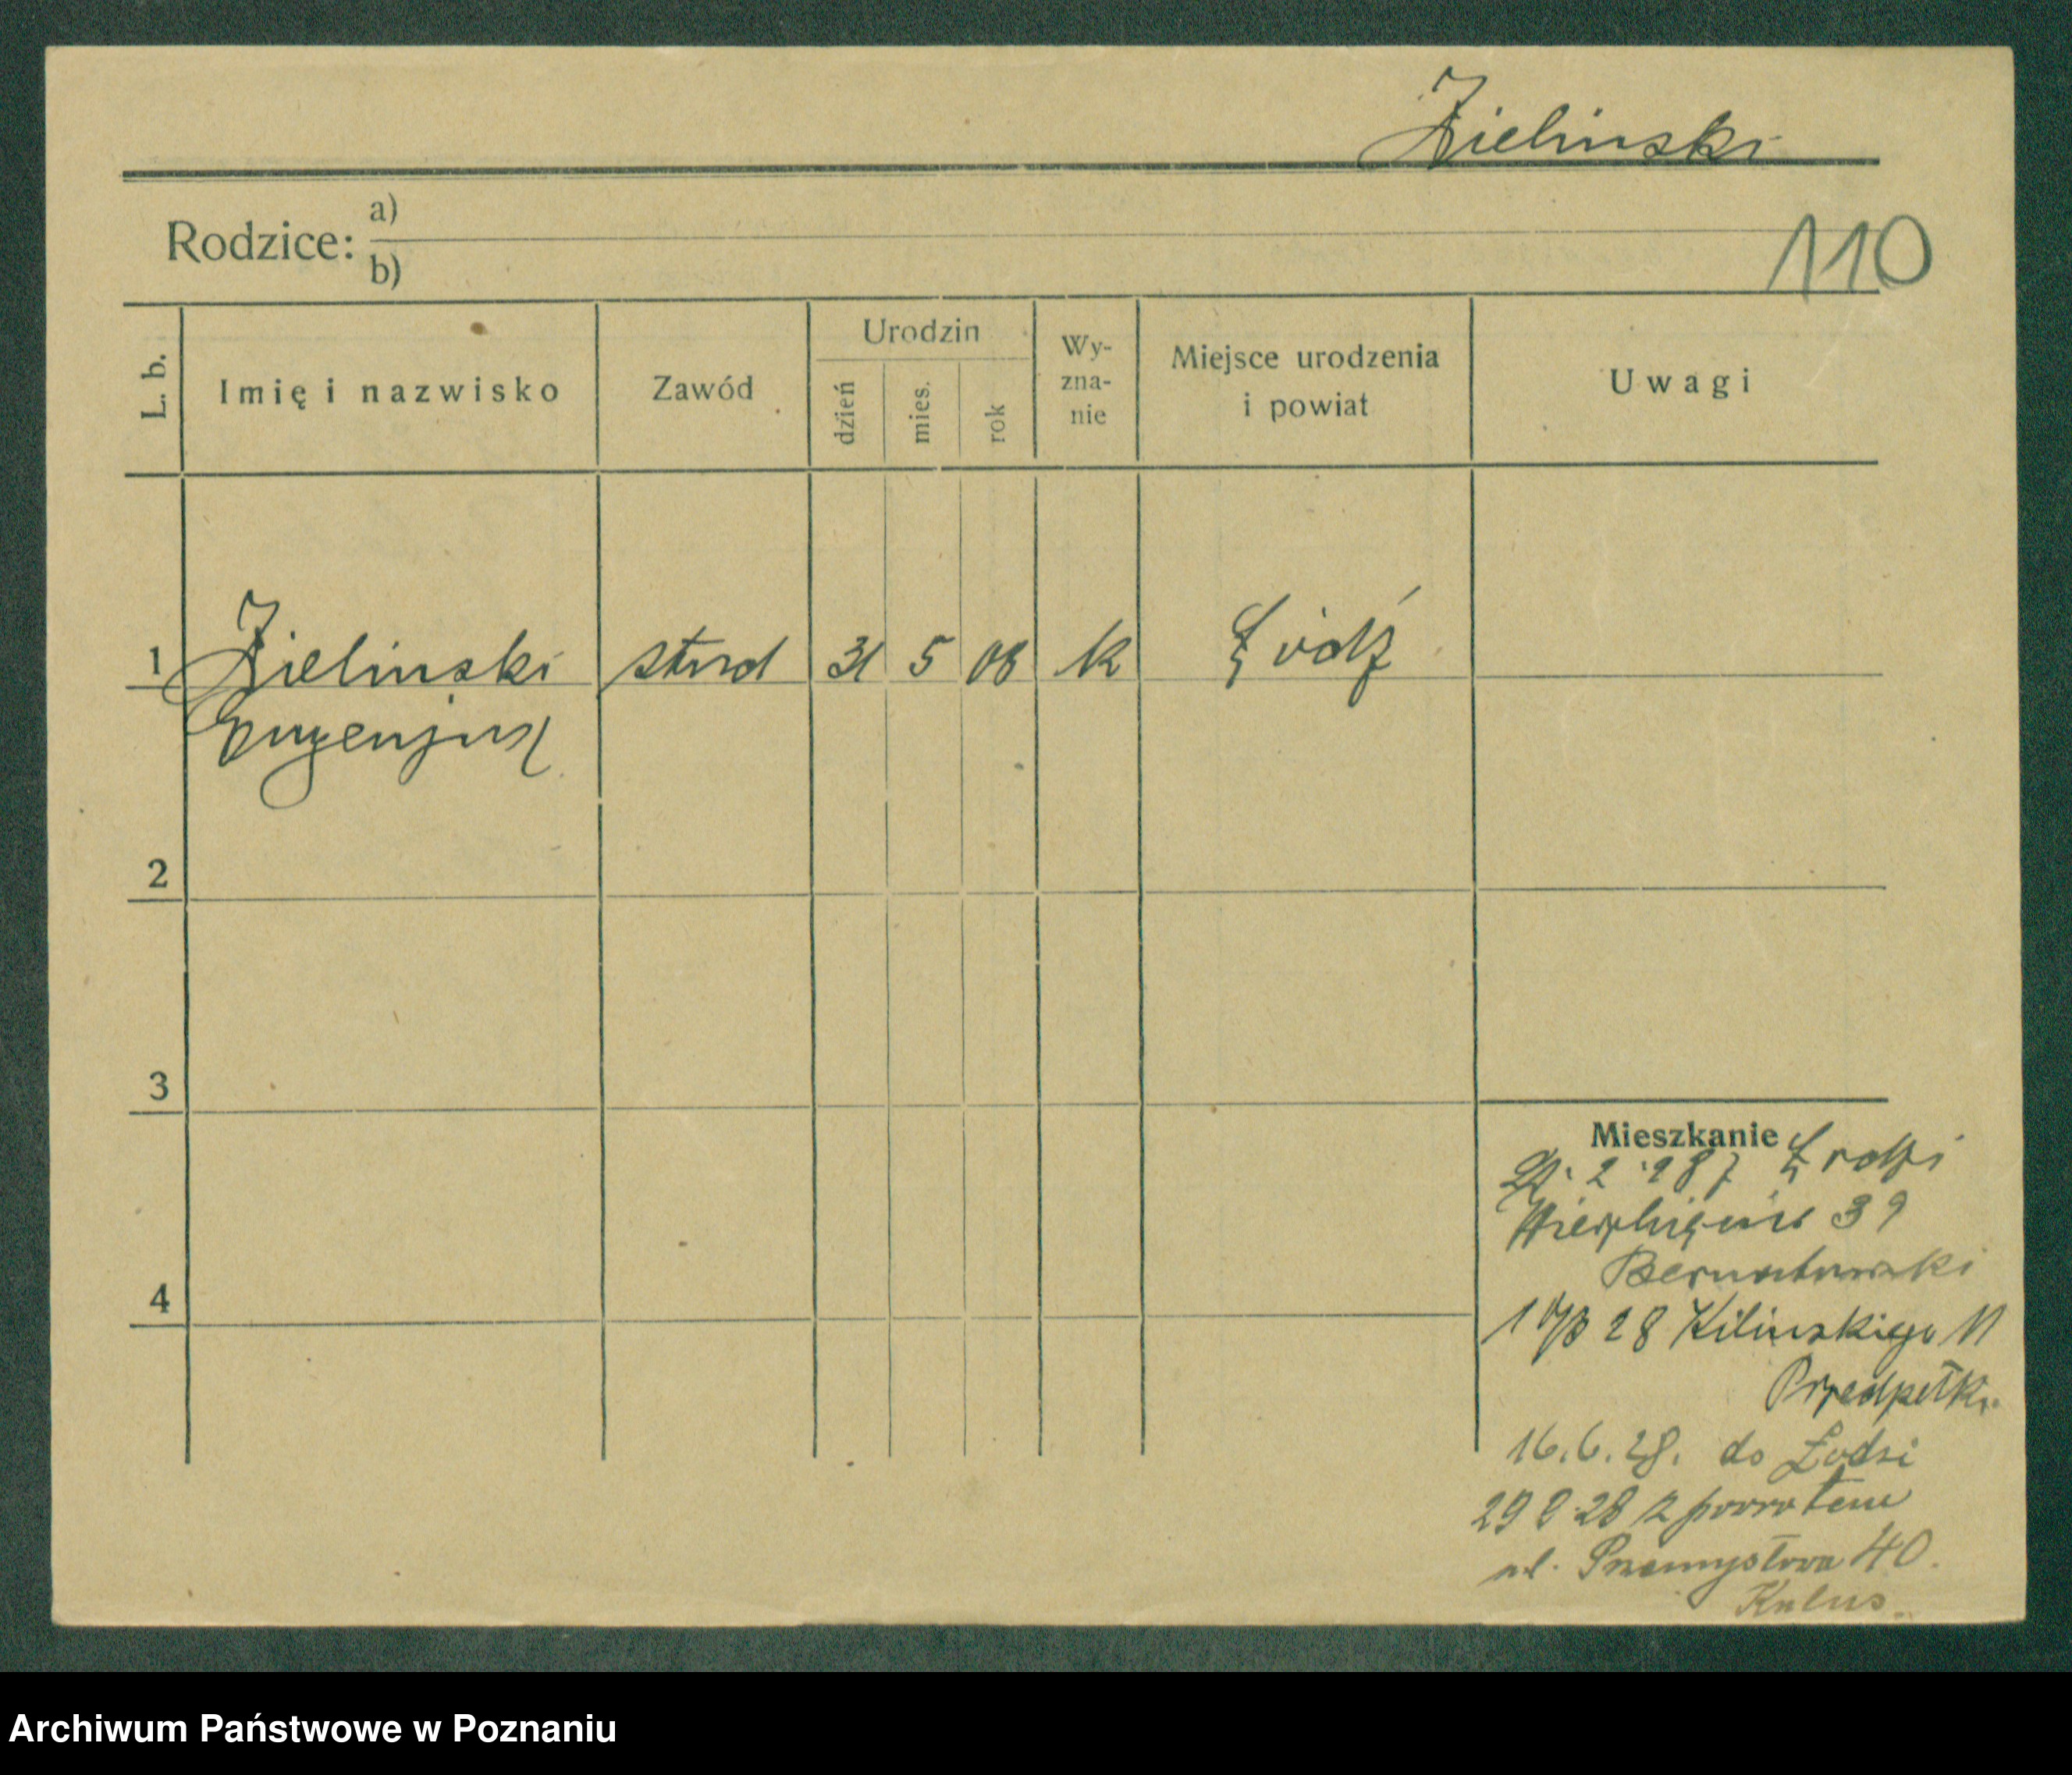 Zielinski
Rodzice: a)
b)
110
L. b.
Imię i nazwisko
Zawód
Urodzin
dzień
mies.
rok
Wy-
zna-
nie
Miejsce urodzenia
i powiat
Uwagi
1 Zielinski stud 31 5 08 k Łódź
Eugenjusz
2
3
4
Mieszkanie
2 28 z Łodzi
Wierzbięcice 39
Bernatowski
28 Kilinskiego 11
16.6.28. do Łodzi
29 9 28 z powrotem
ul. Przemysłowa 40.
Kulus.
Archiwum Państwowe w Poznaniu